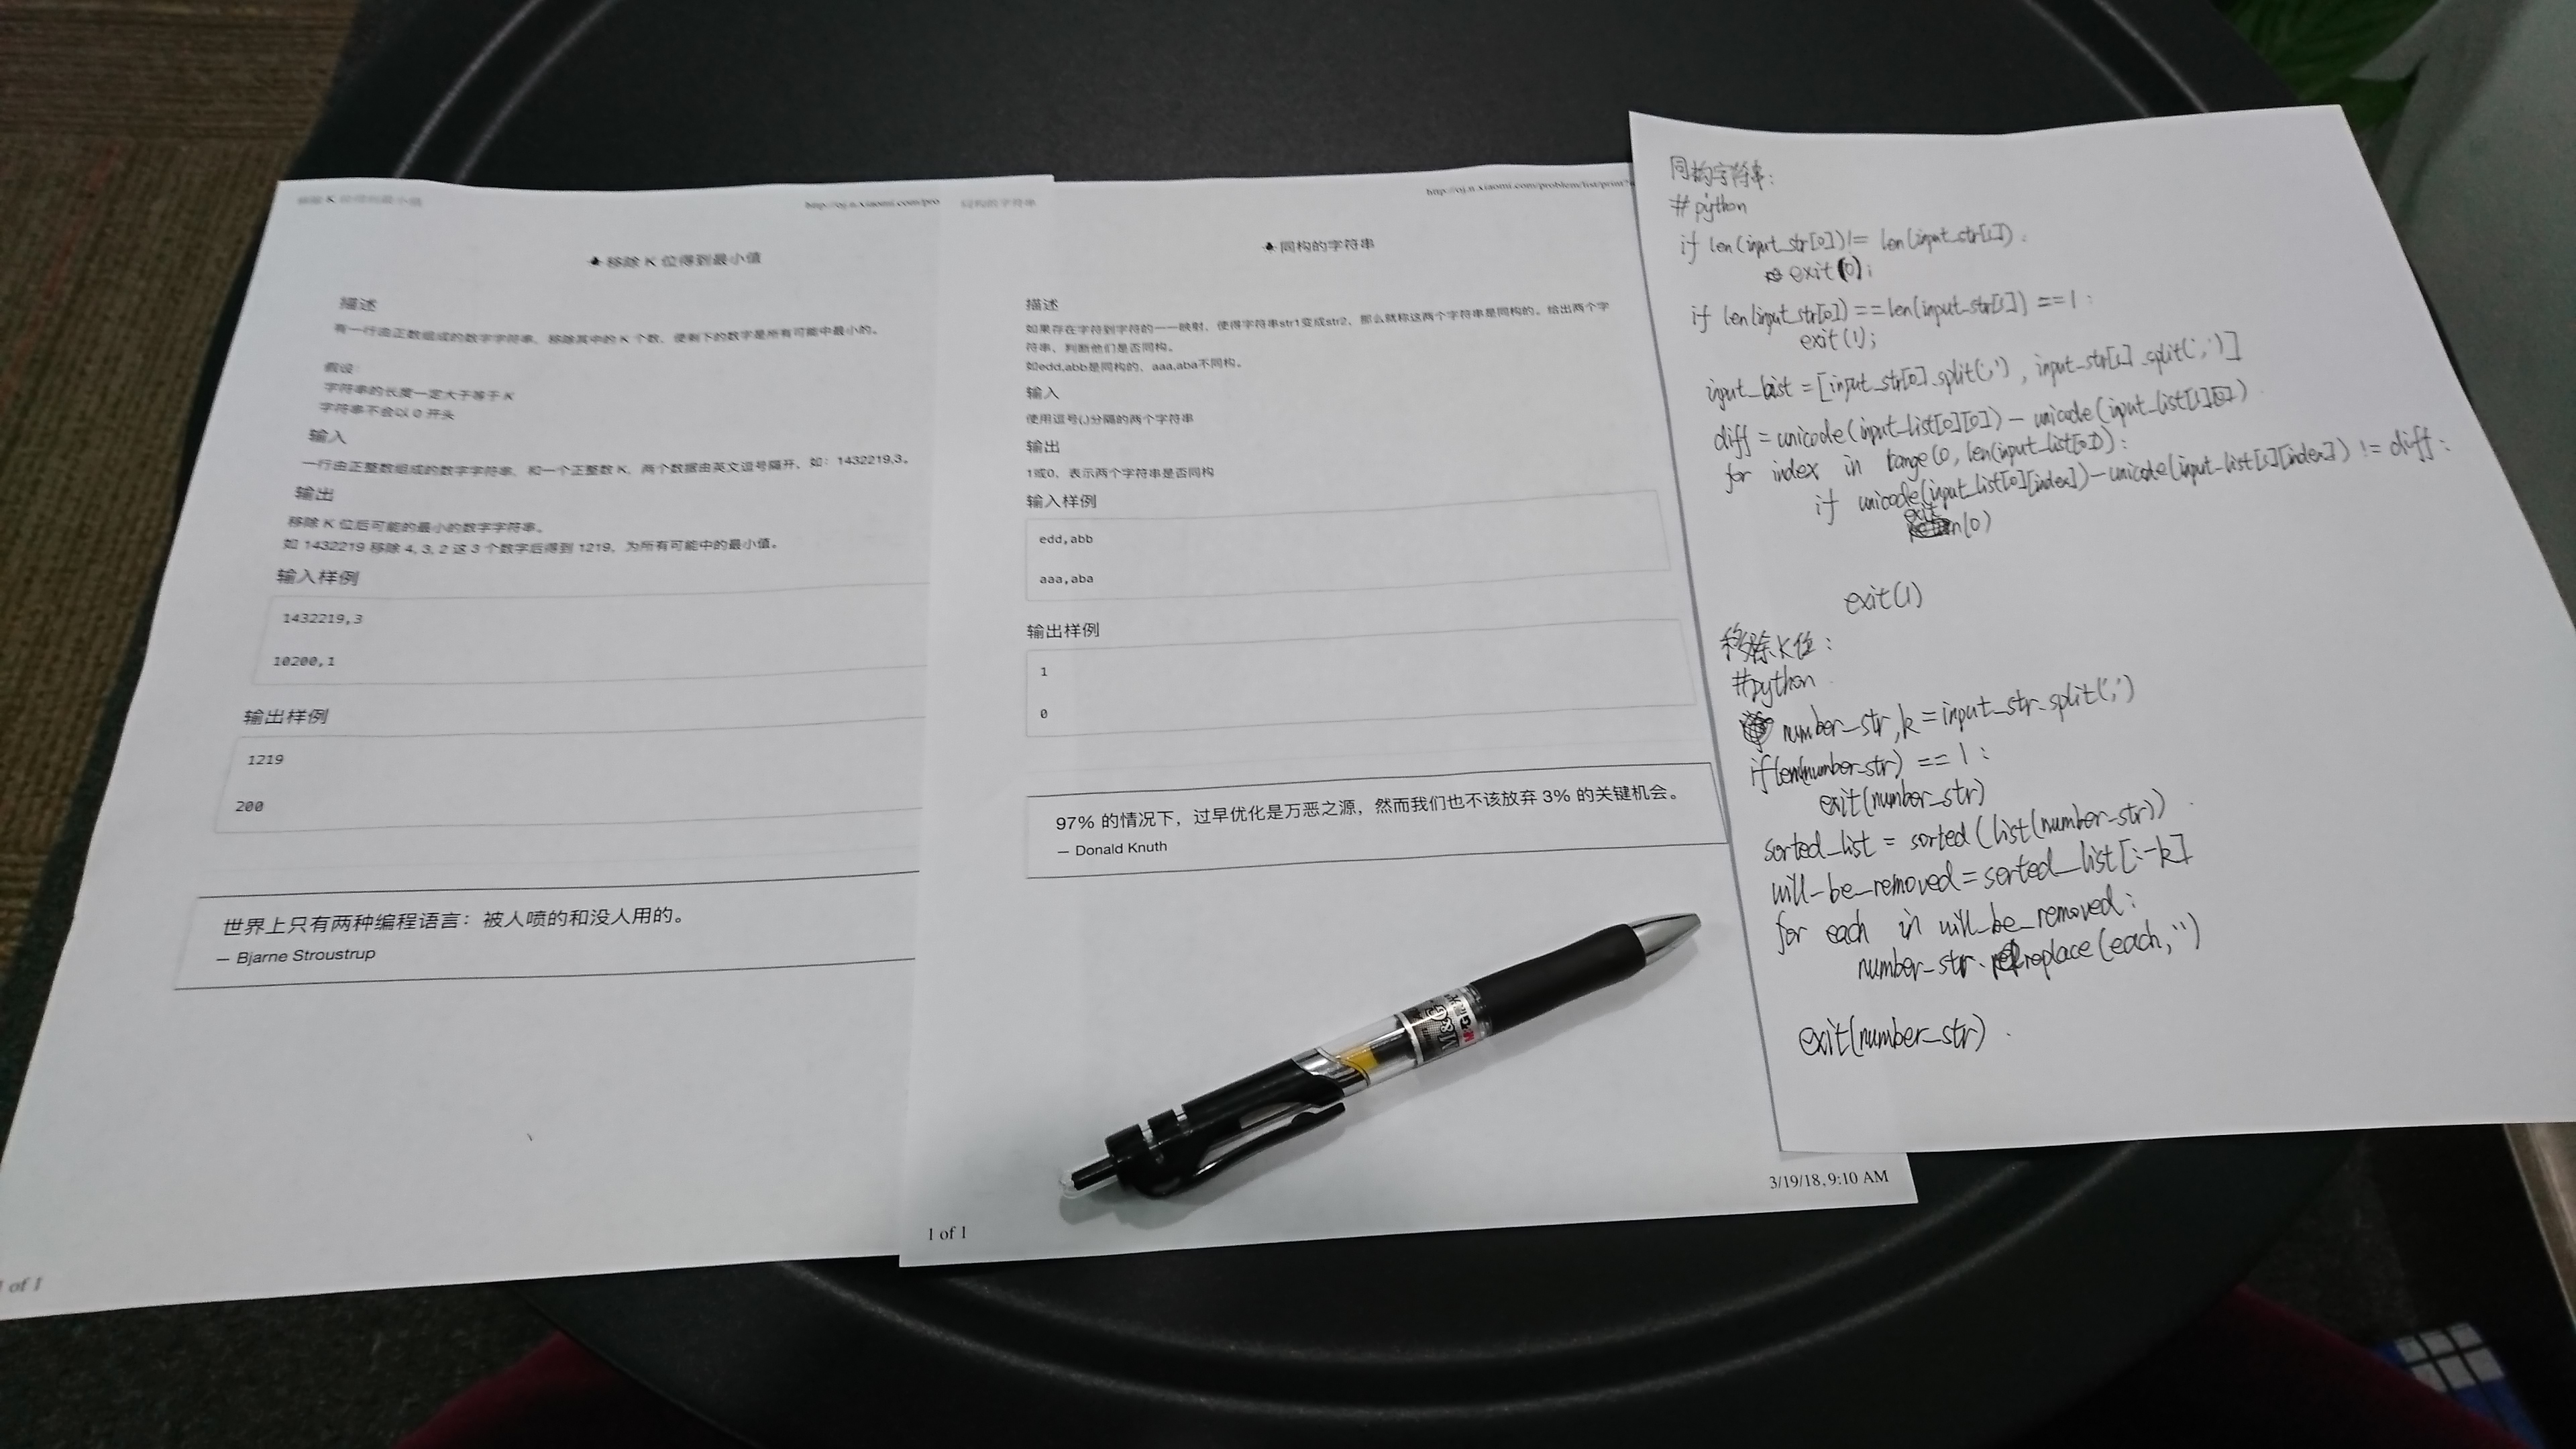 移除 K 位得到最小值
http://oj.n.xiaomi.com/pro
移除 K 位得到最小值
描述
有一行由正数组成的数字字符串，移除其中的 K 个数，使剩下的数字是所有可能中最小的。
假设：
字符串的长度一定大于等于 K
字符串不会以 0 开头
输入
一行由正整数组成的数字字符串，和一个正整数 K，两个数据由英文逗号隔开，如：1432219,3。
输出
移除 K 位后可能的最小的数字字符串。
如 1432219 移除 4, 3, 2 这 3 个数字后得到 1219，为所有可能中的最小值。
输入样例
1432219,3
10200,1
输出样例
1219
200
世界上只有两种编程语言：被人喷的和没人用的。
— Bjarne Stroustrup
1 of 1
同构的字符串
http://oj.n.xiaomi.com/problem/list/print?
同构的字符串
描述
如果存在字符到字符的一一映射，使得字符串str1变成str2，那么就称这两个字符串是同构的。给出两个字
符串，判断他们是否同构。
如edd,abb是同构的，aaa,aba不同构。
输入
使用逗号(,)分隔的两个字符串
输出
1或0，表示两个字符串是否同构
输入样例
edd,abb
aaa,aba
输出样例
1
0
97% 的情况下，过早优化是万恶之源，然而我们也不该放弃 3% 的关键机会。
— Donald Knuth
M&G
3/19/18, 9:10 AM
1 of 1
同构字符串：
# python
if len(input_str[0]) != len(input_str[1]):
exit(0);
if len(input_str[0]) == len(input_str[1]) == 1:
exit(1);
input_list = [input_str[0].split(','), input_str[1].split(',')]
diff = unicode(input_list[0][0]) - unicode(input_list[1][0])
for index in range(0, len(input_list[0])):
if unicode(input_list[0][index]) - unicode(input_list[1][index]) != diff:
exit(0)
exit(1)
移除K位：
#python
number_str, k = input_str.split(',')
if len(number_str) == 1:
exit(number_str)
sorted_list = sorted(list(number_str))
will_be_removed = sorted_list[:-k]
for each in will_be_removed:
number_str.replace(each,'')
exit(number_str)